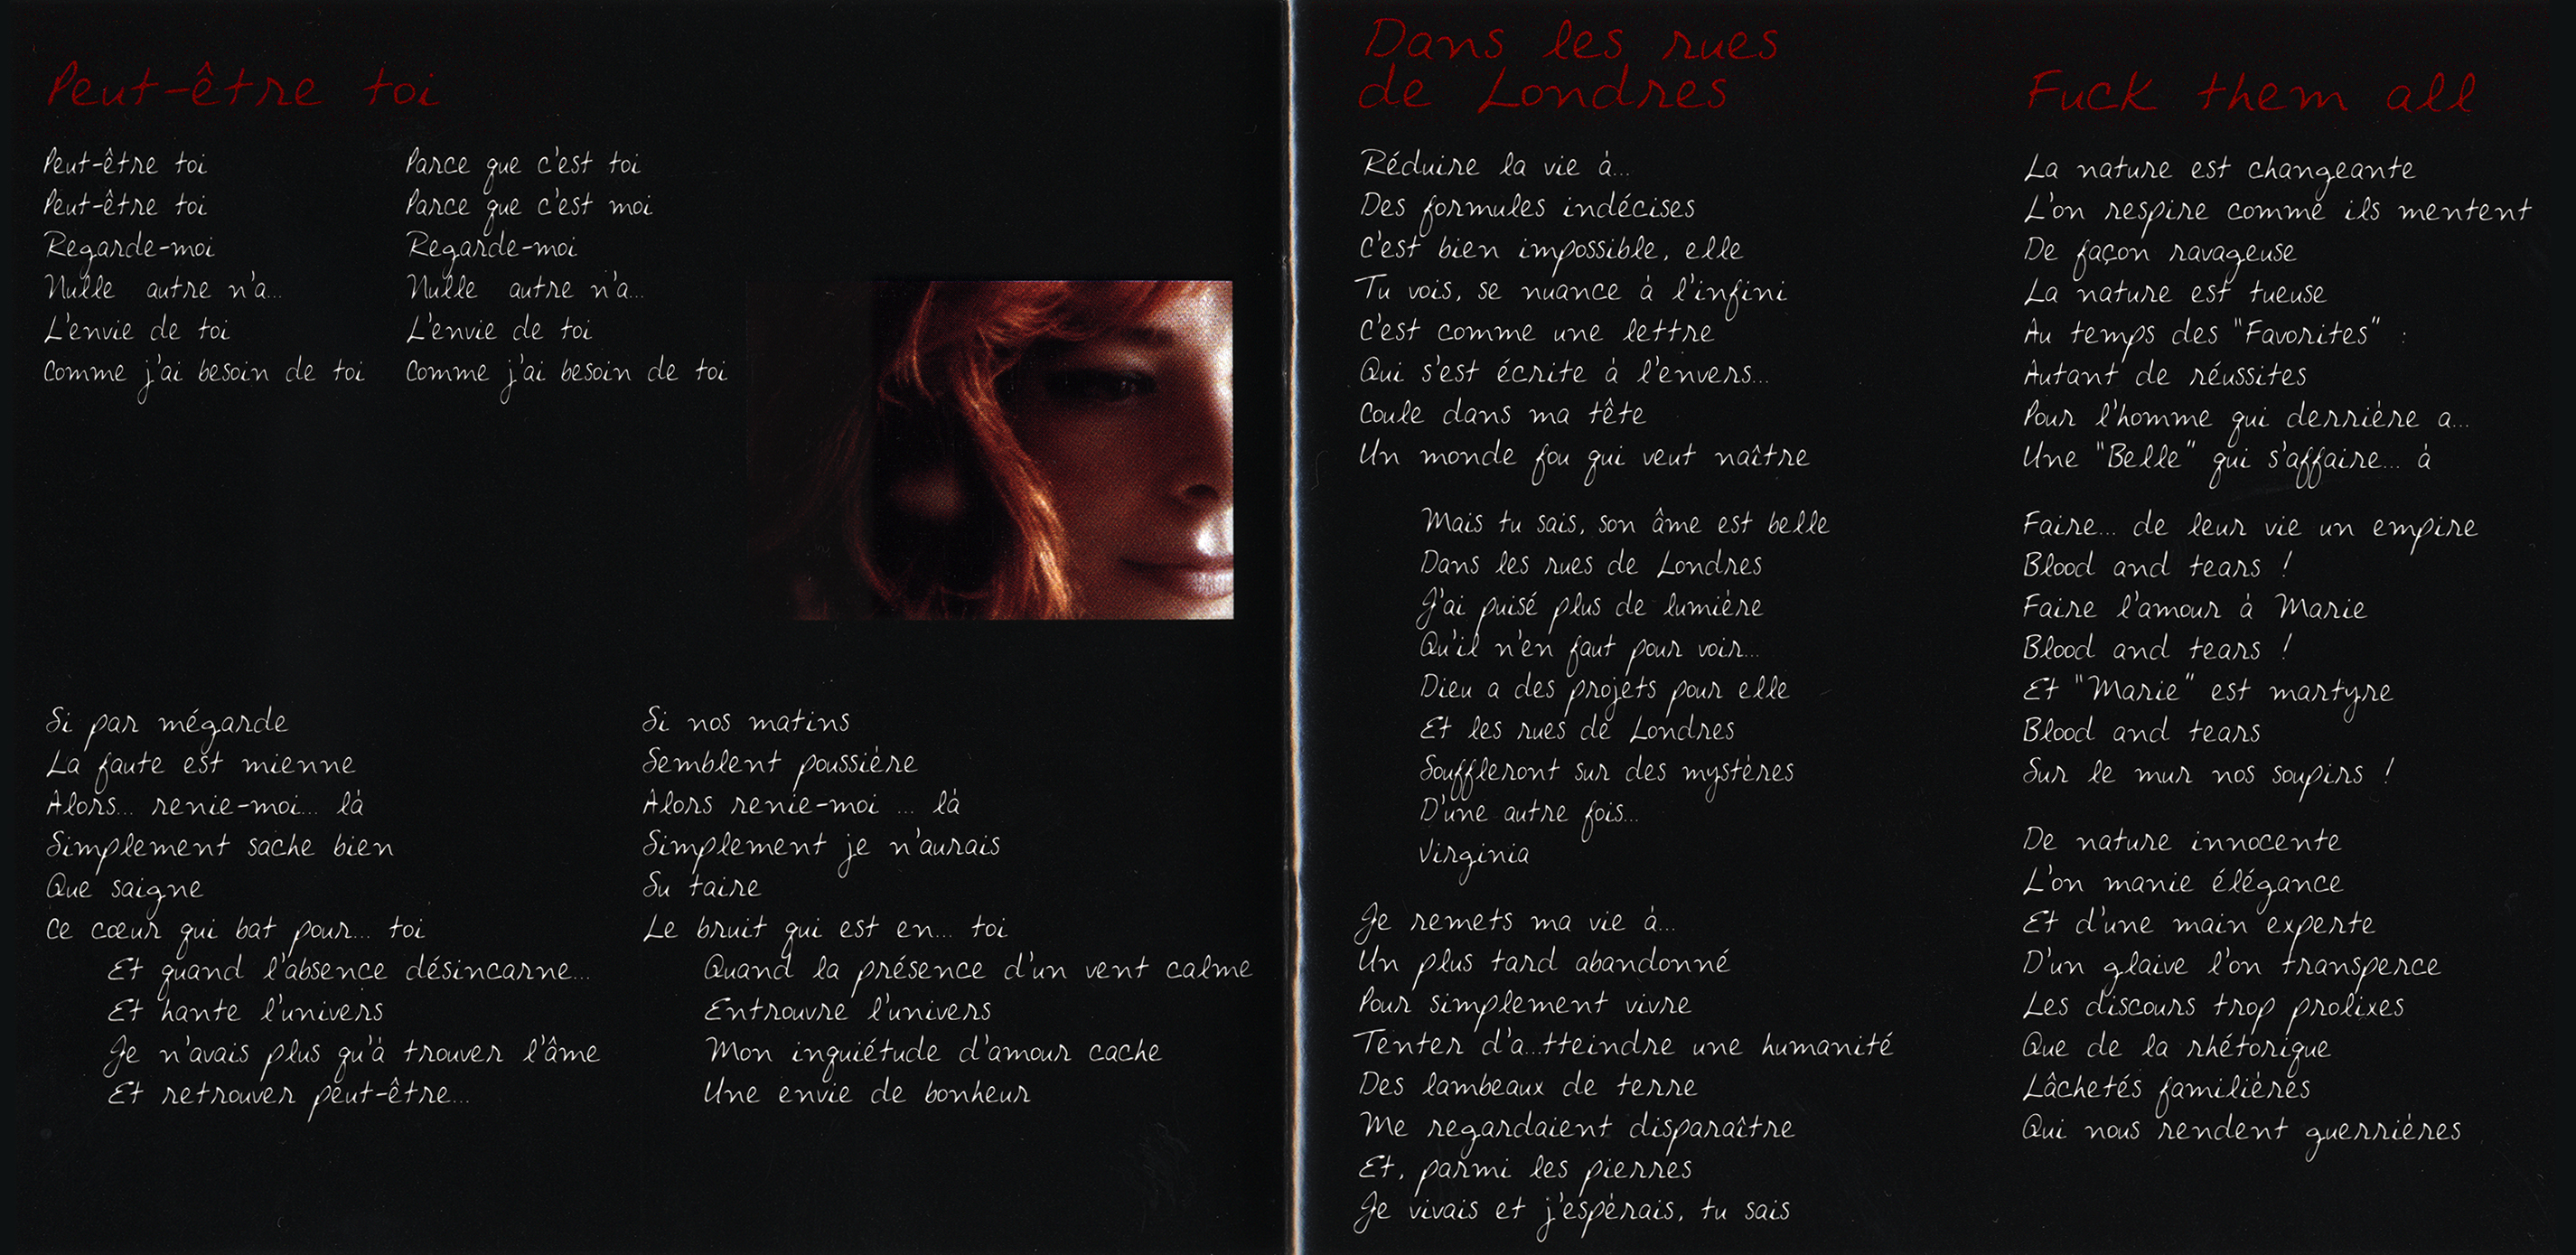 Peut-être toi
Peut-être toi
Peut-être toi
Regarde-moi
Nulle autre n'a...
L'envie de toi
Comme j'ai besoin de toi
Parce que c'est toi
Parce que c'est moi
Regarde-moi
Nulle autre n'a...
L'envie de toi
Comme j'ai besoin de toi
Si par mégarde
La faute est mienne
Alors... renie-moi... là
Simplement sache bien
Que saigne
Ce cœur qui bat pour... toi
Et quand l'absence désincarne...
Et hante l'univers
Je n'avais plus qu'à trouver l'âme
Et retrouver peut-être...
Si nos matins
Semblent poussière
Alors renie-moi ... là
Simplement je n'aurais
Su taire
Le bruit qui est en... toi
Quand la présence d'un vent calme
Entrouvre l'univers
Mon inquiétude d'amour cache
Une envie de bonheur
Dans les rues
de Londres
Réduire la vie à...
Des formules indécises
C'est bien impossible, elle
Tu vois, se nuance à l'infini
C'est comme une lettre
Qui s'est écrite à l'envers...
Coule dans ma tête
Un monde fou qui veut naître
Mais tu sais, son âme est belle
Dans les rues de Londres
J'ai puisé plus de lumière
Qu'il n'en faut pour voir...
Dieu a des projets pour elle
Et les rues de Londres
Souffleront sur des mystères
D'une autre fois...
Virginia
Je remets ma vie à...
Un plus tard abandonné
Pour simplement vivre
Tenter d'a...tteindre une humanité
Des lambeaux de terre
Me regardaient disparaître
Et, parmi les pierres
Je vivais et j'espérais, tu sais
Fuck them all
La nature est changeante
L'on respire comme ils mentent
De façon ravageuse
La nature est tueuse
Au temps des "Favorites" :
Autant de réussites
Pour l'homme qui derrière a...
Une "Belle" qui s'affaire... à
Faire... de leur vie un empire
Blood and tears !
Faire l'amour à Marie
Blood and tears !
Et "Marie" est martyre
Blood and tears
Sur le mur nos soupirs !
De nature innocente
L'on manie élégance
Et d'une main experte
D'un glaive l'on transperce
Les discours trop prolixes
Que de la rhétorique
Lâchetés familières
Qui nous rendent guerrières